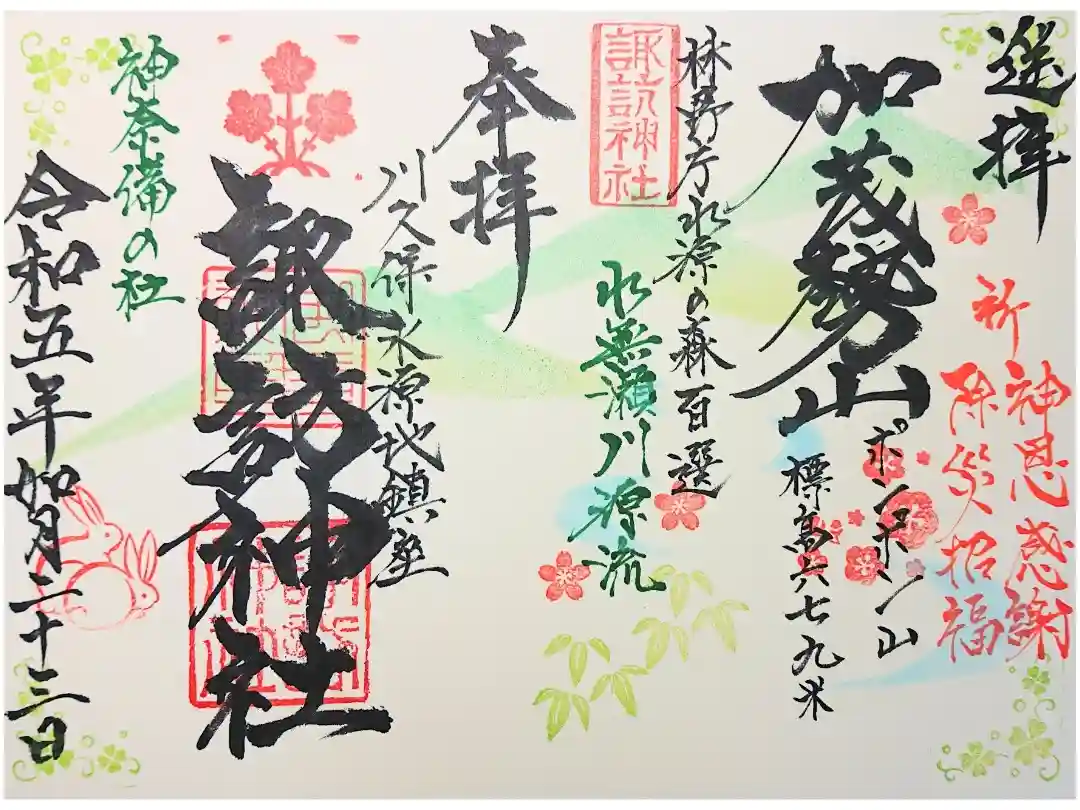 遥拝
祈 神恩感謝
除災招福
加茂勢山
ポンポン山
標高六七九米
林野庁水源の森百選
諏訪神社
水無瀬川源流
奉拝
川久保水源地鎮座
諏訪神社
神奈備の社
令和五年如月二十三日